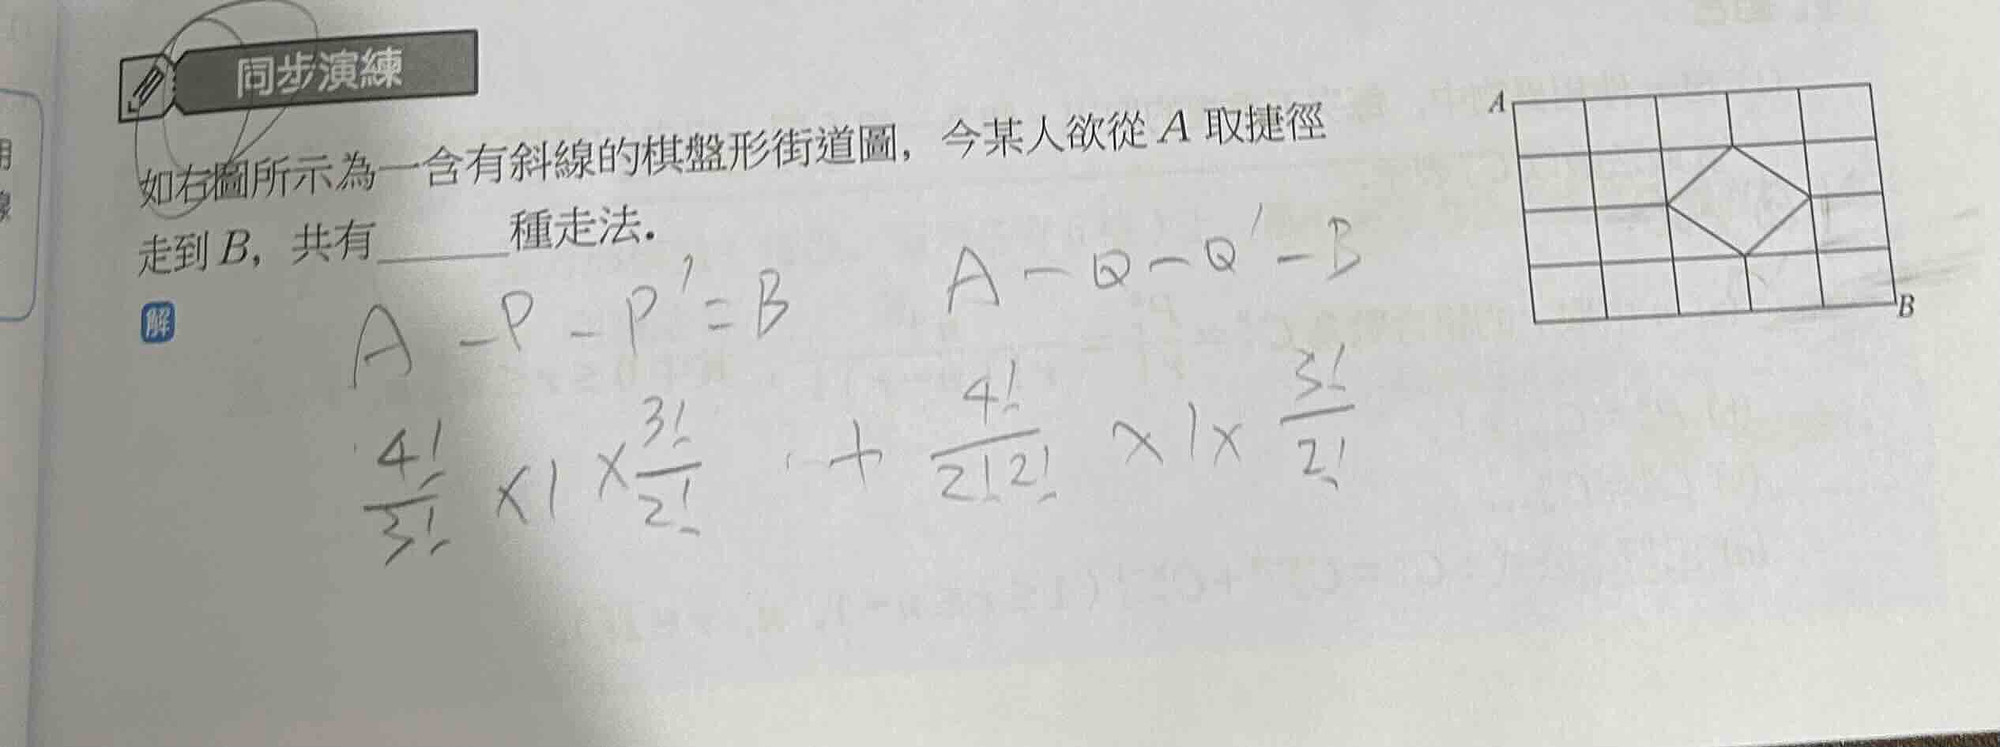 同步演練
如右圖所示為一含有斜線的棋盤形街道圖，今某人欲從 A 取捷徑
走到 B，共有______種走法．
A
B
解
A - P - P' = B
A - Q - Q' - B
4!/3! × 1 × 3!/2! + 4!/2!2! × 1 × 3!/2!